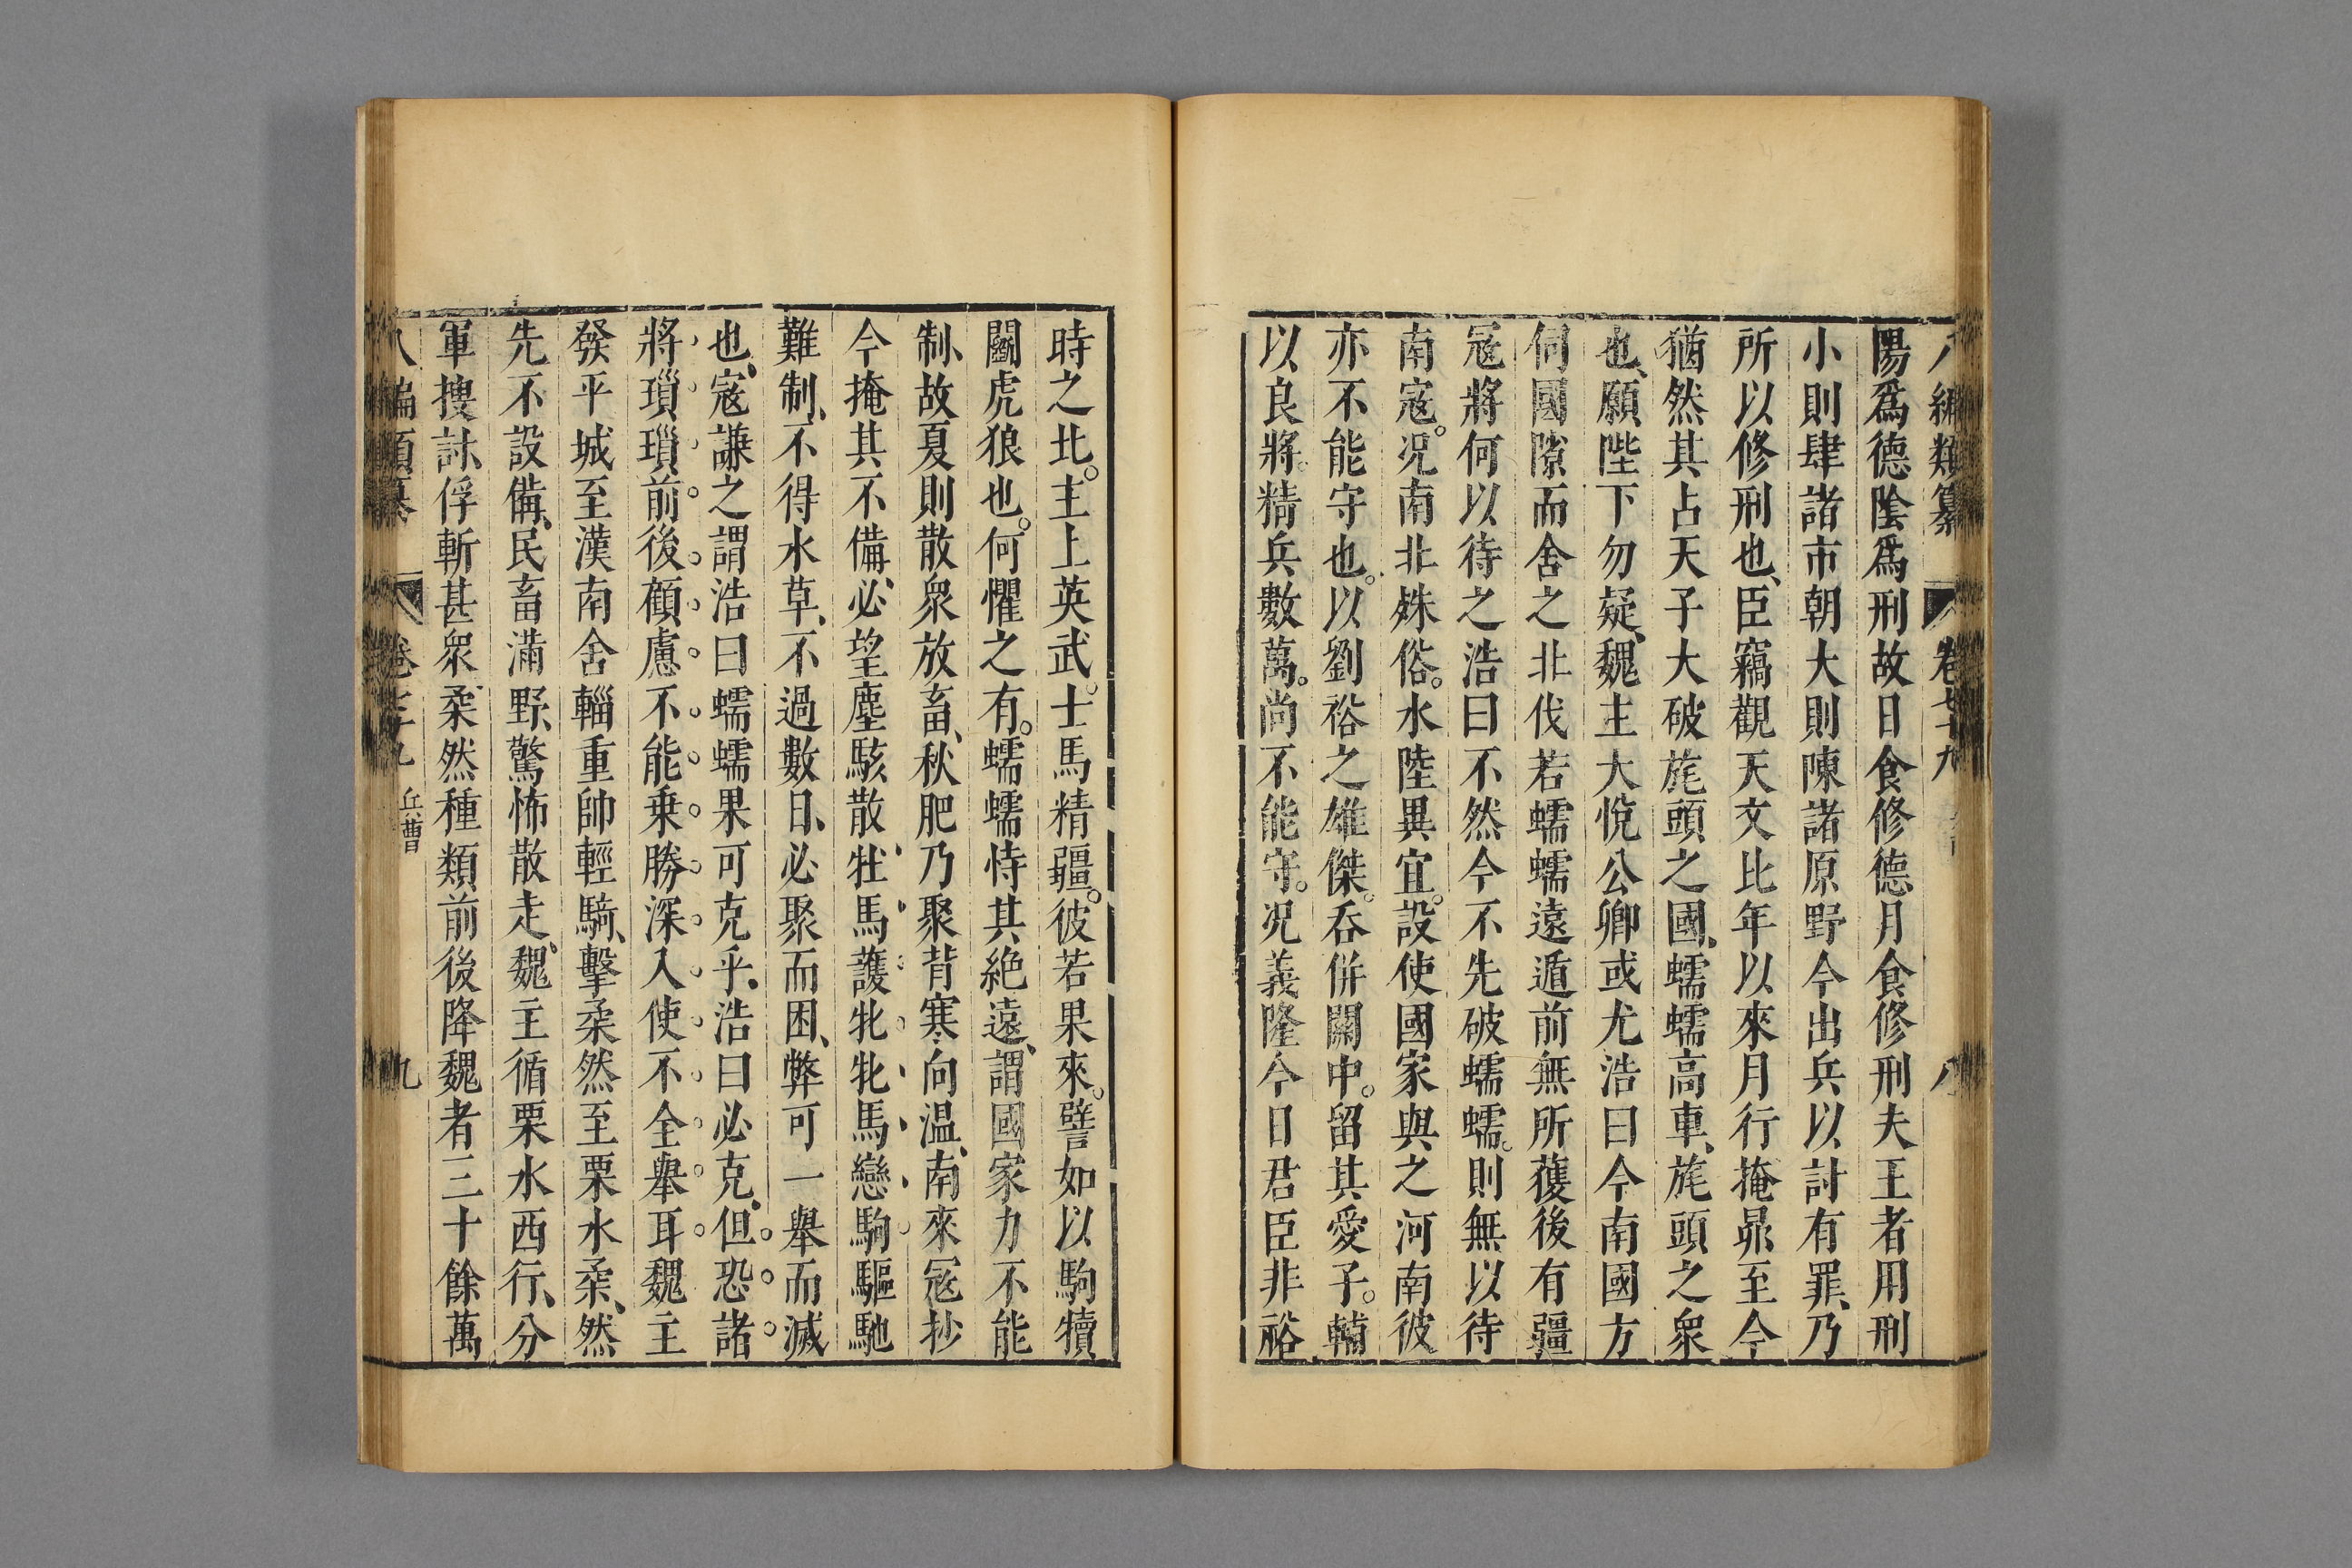 八編類纂 卷七十九 八
陽爲德陰爲刑故日食修德月食修刑夫王者用刑
小則肆諸市朝大則陳諸原野今出兵以討有罪、乃
所以修刑也、臣竊觀天文比年以來月行掩昴至今
猶然其占天子大破旄頭之國、蠕蠕高車、旄頭之衆
也、願陛下勿疑、魏主大悅公卿或尤浩曰今南國方
伺國隙而舍之北伐若蠕蠕遠遁前無所獲後有疆
寇將何以待之浩曰不然今不先破蠕蠕。則無以待
南寇。况南北殊俗。水陸異宜。設使國家與之河南彼
亦不能守也。以劉裕之雄傑。吞併關中。留其愛子。輔
以良將。精兵數萬。尚不能守。况義隆今日君臣非裕
時之北。主上英武。士馬精疆。彼若果來。譬如以駒犢
鬭虎狼也。何懼之有。蠕蠕恃其絶遠、謂國家力不能
制、故夏則散衆放畜、秋肥乃聚背寒向温、南來寇抄
今掩其不備、必望塵駭散牡馬護牝牝馬戀駒驅馳
難制、不得水草、不過數日、必聚而困、弊可一舉而滅
也、寇謙之謂浩曰蠕蠕果可克乎、浩曰必克。但恐諸
將瑣瑣前後顧慮不能乗勝深入使不全舉耳魏主
發平城至漠南舍輜重帥輕騎、擊柔然至栗水柔、然
先不設備、民畜滿野、驚怖散走。魏主循栗水西行、分
軍搜討、俘斬甚衆、柔然種類前後降魏者三十餘萬
八編類纂 卷七十九 兵曹 九